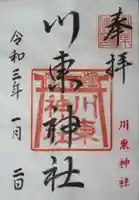 奉拝
川東神社
川東神社
令和三年一月二日
川東神社